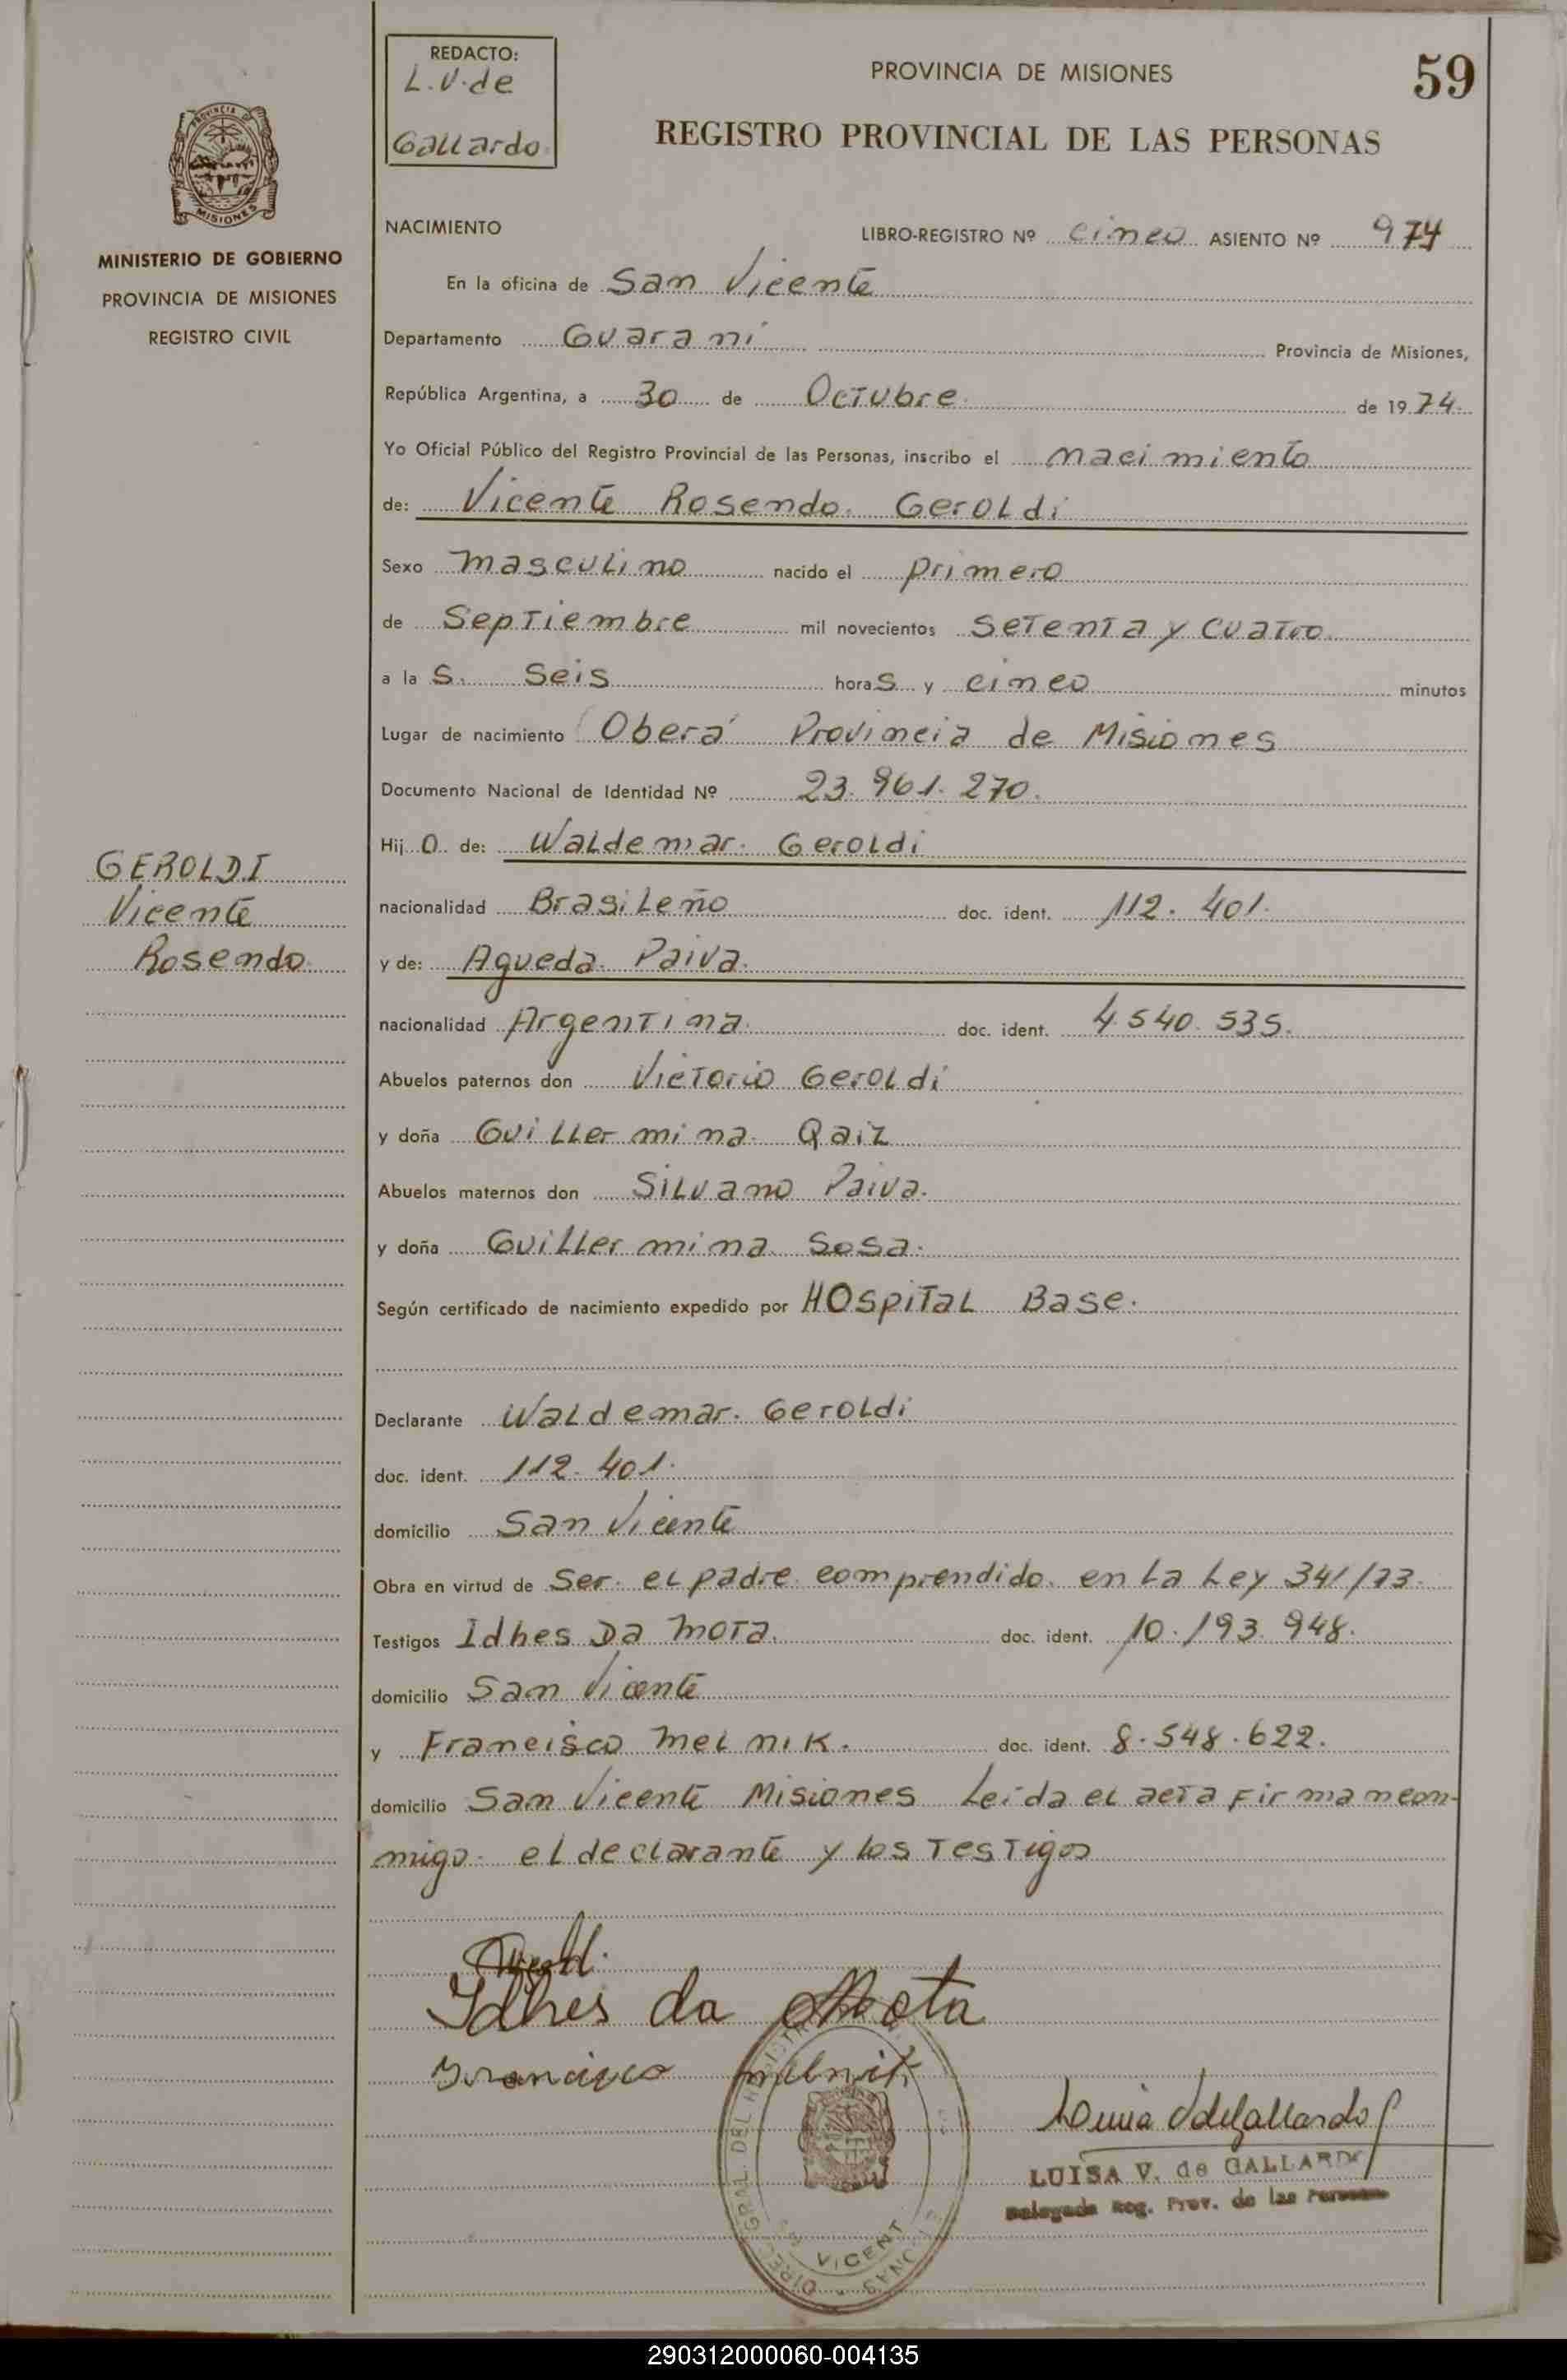 REDACTO:
L.V. de
Gallardo
PROVINCIA DE MISIONES
59
REGISTRO PROVINCIAL DE LAS PERSONAS
PROVINCIA
MISIONES
MINISTERIO DE GOBIERNO
PROVINCIA DE MISIONES
REGISTRO CIVIL
NACIMIENTO
LIBRO-REGISTRO Nº cinco ASIENTO Nº 974
En la oficina de San Vicente
Departamento Guaraní Provincia de Misiones,
República Argentina, a 30 de Octubre de 1974.
Yo Oficial Público del Registro Provincial de las Personas, inscribo el nacimiento
de: Vicente Rosendo. Geroldi
Sexo masculino nacido el primero
de Septiembre mil novecientos setenta y cuatro
a las. seis horas y cinco minutos
Lugar de nacimiento Oberá Provincia de Misiones
Documento Nacional de Identidad Nº 23.961.270.
Hijo de: Waldemar. Geroldi
GEROLDI
Vicente
Rosendo.
nacionalidad Brasileño doc. ident. 112.401.
y de: Agueda Paiva.
nacionalidad Argentina doc. ident. 4.540.535.
Abuelos paternos don Victorio Geroldi
y doña Guillermina Qaiz
Abuelos maternos don Silvano Paiva.
y doña Guillermina Sosa.
Según certificado de nacimiento expedido por Hospital Base.
Declarante Waldemar. Geroldi
doc. ident. 112.401.
domicilio San Vicente
Obra en virtud de ser. el padre comprendido. en la Ley 341/73.
Testigos Idhes Da Mota. doc. ident. 10.193.948.
domicilio San Vicente
y Francisco Melnik. doc. ident. 8.548.622.
domicilio San Vicente Misiones Leída el acta firman con-
migo. el declarante y los testigos
Idhes da Mota
Francisco Melnik
Luisa V de Gallardo
LUISA V. de GALLARDO
Delegada Reg. Prov. de las Personas
VICENT
290312000060-004135